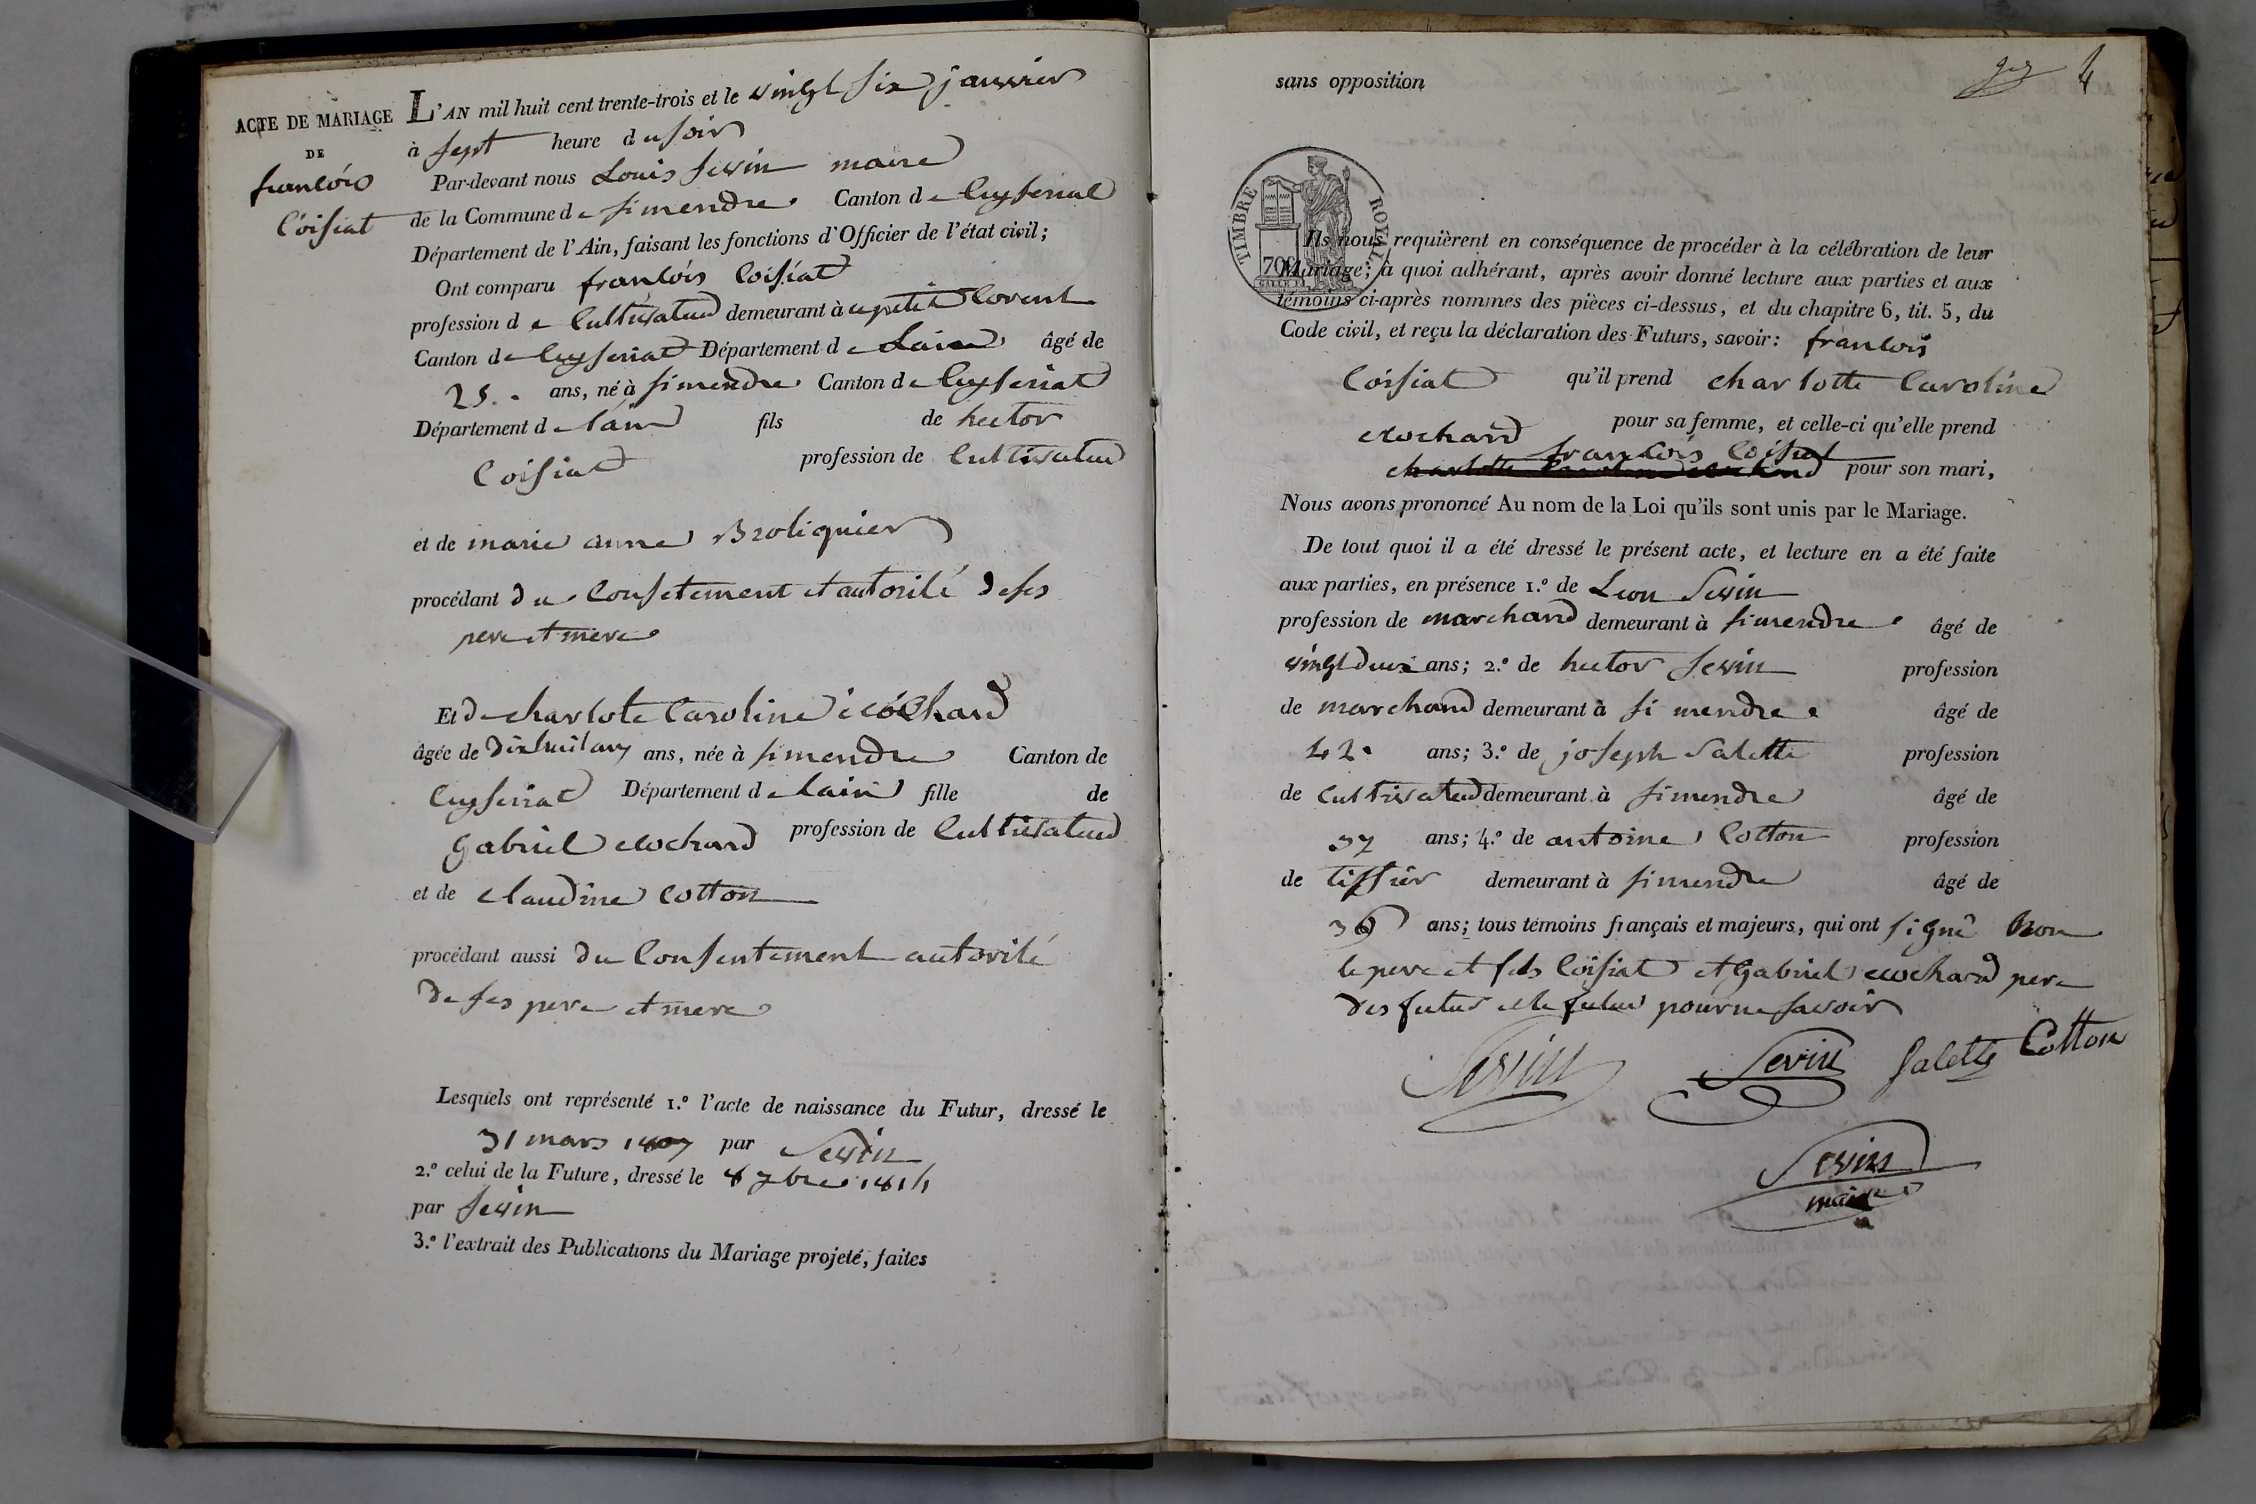 ACTE DE MARIAGE
DE
francóis
Coisiat
L'AN mil huit cent trente-trois et le vingt six janvier
à sept heure du soir
Par-devant nous Louis Sevin maire
de la Commune de simendre Canton de Ceyseriat
Département de l'Ain, faisant les fonctions d'Officier de l'état civil;
Ont comparu francóis Coisiat
profession de Cultivateur demeurant à petit Corent
Canton de Ceyseriat Département de Lain âgé de
25 ans, né à simendre Canton de Ceyseriat
Département de lain fils de hector
Coisiat profession de Cultivateur
et de marie anne Broliquier
procédant du Consetement et autorité de ses
pere et mere
Et de charlote Caroline écochard
âgée de dixhuit ans ans, née à simendre Canton de
Ceyseriat Département de Lain fille de
Gabriel ecochard profession de Cultivateur
et de claudine Cotton
procédant aussi du Consentement autorité
de ses pere et mere
Lesquels ont représenté 1.º l'acte de naissance du Futur, dressé le
31 mars 1807 par Sevin
2.º celui de la Future, dressé le 8 7bre 1814
par Sevin
3.º l'extrait des Publications du Mariage projeté, faites
4
sans opposition
TIMBRE ROYAL
70
Ils nous requièrent en conséquence de procéder à la célébration de leur
Mariage; à quoi adhérant, après avoir donné lecture aux parties et aux
témoins ci-après nommés des pièces ci-dessus, et du chapitre 6, tit. 5, du
Code civil, et reçu la déclaration des Futurs, savoir: francois
Coisiat qu'il prend charlotte Caroline
ecochard pour sa femme, et celle-ci qu'elle prend
francóis Coisiat
pour son mari,
Nous avons prononcé Au nom de la Loi qu'ils sont unis par le Mariage.
De tout quoi il a été dressé le présent acte, et lecture en a été faite
aux parties, en présence 1.º de Leon Sevin
profession de marchand demeurant à simendre âgé de
vingt deux ans; 2.º de hector Sevin profession
de marchand demeurant à simendre âgé de
42 ans; 3.º de joseph Salette profession
de Cultivateur demeurant à simendre âgé de
37 ans; 4.º de antoine Cotton profession
de tissier demeurant à simendre âgé de
36 ans; tous témoins français et majeurs, qui ont signé Non
le pere et fils Coisiat et Gabriel ecochard pere
des futur et la futur pour ne savoir
Sevin Sevin Salette Cotton
Sevin
maire